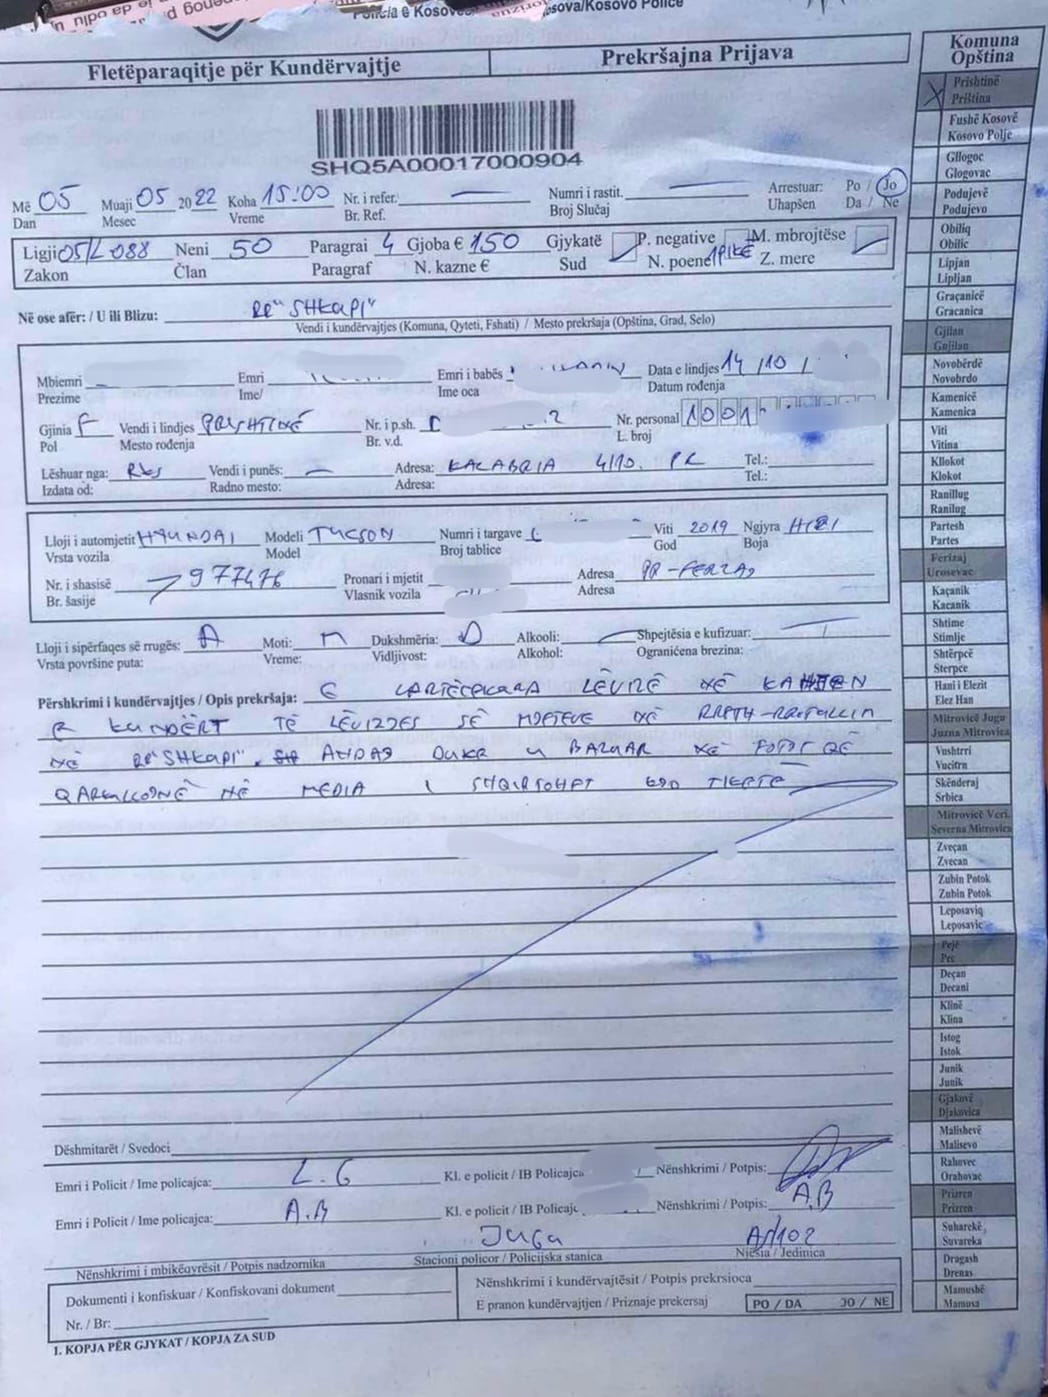 Policia e Kosovës
Kosova/Kosovo Police
Fletëparaqitje për Kundërvajtje Prekršajna Prijava
SHQ5A00017000904
Më 05 Muaji 05 2022 Koha 15:00 Nr. i refer. Numri i rastit. Arrestuar: Po / Jo
Dan Mesec Vreme Br. Ref. Broj Slučaj Uhapšen Da / Ne
Ligji 05/L 088 Neni 50 Paragrai 4 Gjoba € 150 Gjykatë P. negative M. mbrojtëse
Zakon Član Paragraf N. kazne € Sud N. poene 1 PIKË Z. mere
Në ose afër: / U ili Blizu: RR "SHKUPI"
Vendi i kundërvajtjes (Komuna, Qyteti, Fshati) / Mesto prekršaja (Opština, Grad, Selo)
Mbiemri Emri Emri i babës Data e lindjes 14/10/
Prezime Ime/ Ime oca Datum rođenja
Gjinia F Vendi i lindjes PRISHTINË Nr. i p.sh. Nr. personal 1001
Pol Mesto rođenja Br. v.d. L. broj
Lëshuar nga: RKS Vendi i punës: Adresa: KALABRIA 4/10. PR Tel.:
Izdata od: Radno mesto: Adresa: Tel.:
Lloji i automjetit HYUNDAI Modeli TUCSON Numri i targave Viti 2019 Ngjyra HIRI
Vrsta vozila Model Broj tablice God Boja
Nr. i shasisë 977476 Pronari i mjetit Adresa PR-FERZAJ
Br. šasije Vlasnik vozila Adresa
Lloji i sipërfaqes së rrugës: A Moti: Dukshmëria: D Alkooli: Shpejtësia e kufizuar:
Vrsta površine puta: Vreme: Vidljivost: Alkohol: Ograničena brezina:
Përshkrimi i kundërvajtjes / Opis prekršaja: E LARTËCEKURA LËVIZË NË KAHJEN
E KUNDËRT TË LËVIZJES SË MJETEVE NË RRETH-RROTULLIM
NË RR "SHKUPI". ANDAJ DUKE U BAZUAR NË FOTOT QË
QARKULLOJNË NË MEDIA I SHQIPTOHET KJO FLETË
Dëshmitarët / Svedoci
Emri i Policit / Ime policajca: L.G Kl. e policit / IB Policajca Nënshkrimi / Potpis:
Emri i Policit / Ime policajca: A.B Kl. e policit / IB Policajc Nënshkrimi / Potpis: A.B
JUGU A/102
Nënshkrimi i mbikëqyrësit / Potpis nadzornika Stacioni policor / Policijska stanica Njësia / Jedinica
Dokumenti i konfiskuar / Konfiskovani dokument
Nr. / Br:
Nënshkrimi i kundërvajtësit / Potpis prekrsioca
E pranon kundërvajtjen / Priznaje prekersaj PO / DA JO / NE
1. KOPJA PËR GJYKAT / KOPJA ZA SUD
Komuna
Opština
X Prishtinë
Priština
Fushë Kosovë
Kosovo Polje
Gllogoc
Glogovac
Podujevë
Podujevo
Obiliq
Obilic
Lipjan
Lipljan
Graçanicë
Gracanica
Gjilan
Gnjilan
Novobërdë
Novobrdo
Kamenicë
Kamenica
Viti
Vitina
Kllokot
Klokot
Ranillug
Ranilug
Partesh
Partes
Ferizaj
Urosevac
Kaçanik
Kacanik
Shtime
Stimlje
Shtërpcë
Sterpce
Hani i Elezit
Elez Han
Mitrovicë Jugu
Juzna Mitrovica
Vushtrri
Vucitrn
Skënderaj
Srbica
Mitrovicë Veri.
Severna Mitrovica
Zveçan
Zvecan
Zubin Potok
Zubin Potok
Leposaviq
Leposavic
Pejë
Pec
Deçan
Decani
Klinë
Klina
Istog
Istok
Junik
Junik
Gjakovë
Djakovica
Malishevë
Malisevo
Rahovec
Orahovac
Prizren
Prizren
Suharekë
Suvareka
Dragash
Drenas
Mamushë
Mamusa